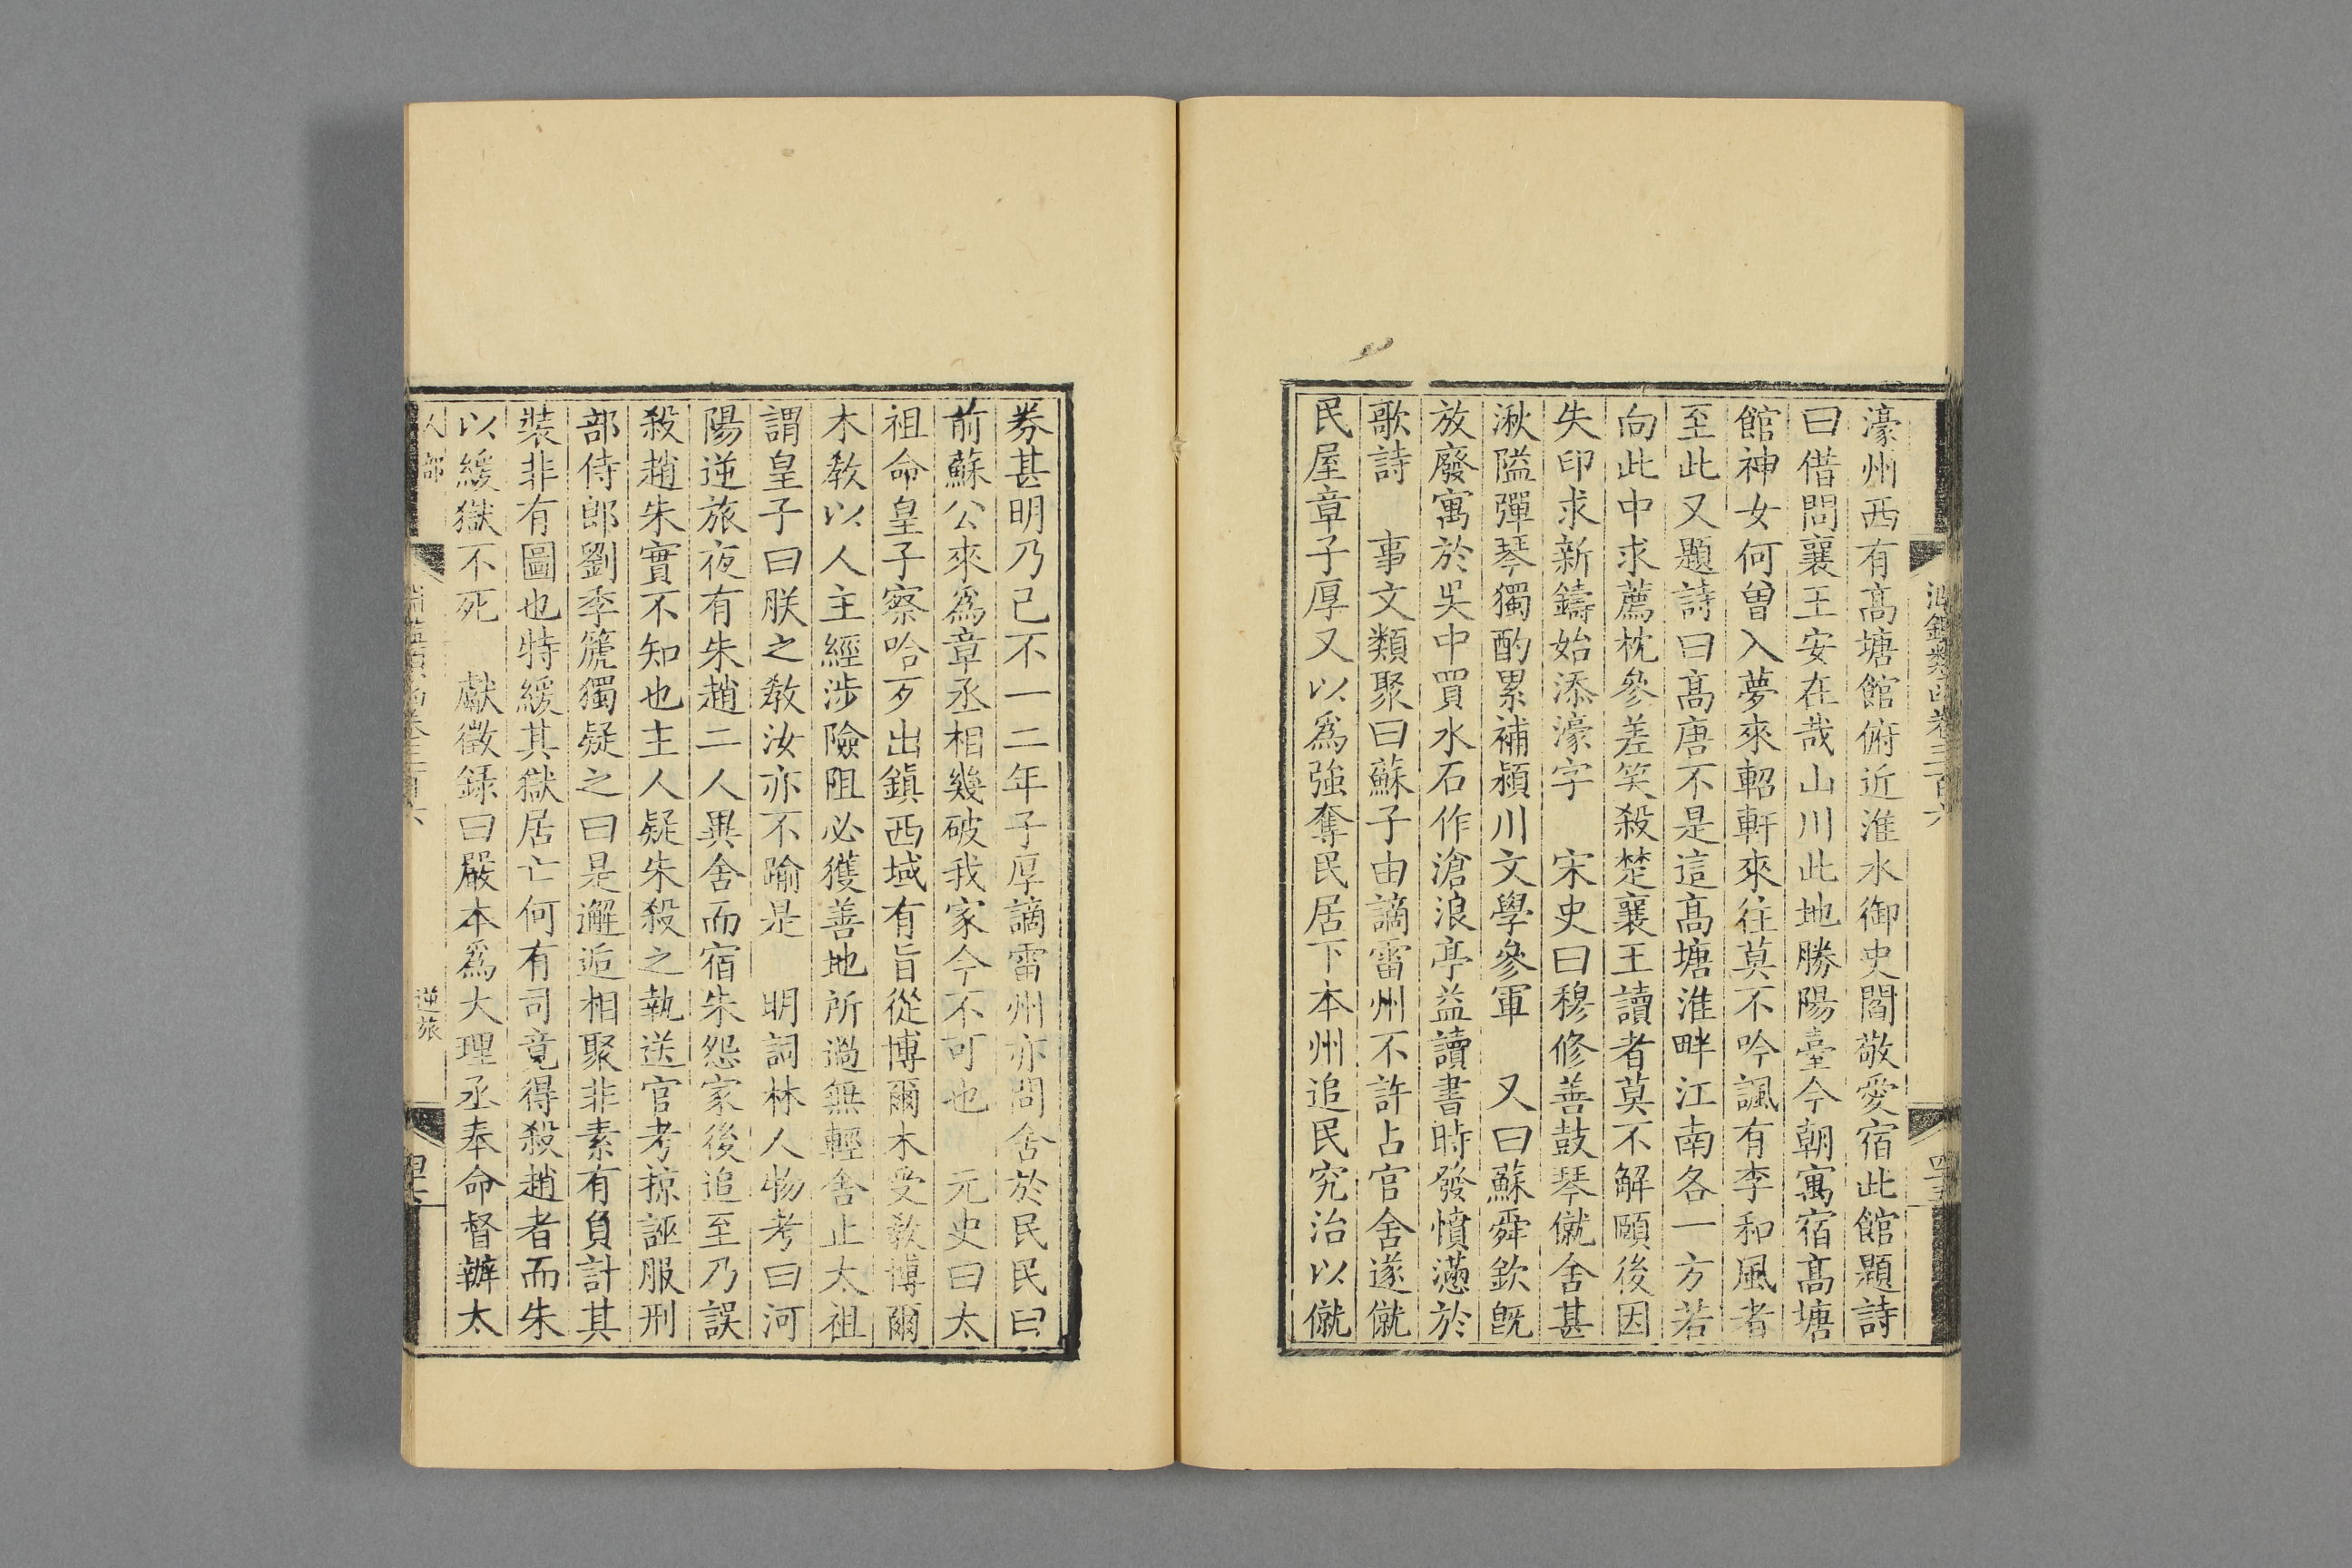 淵鑑類函卷三百六
四十五
濠州西有高塘館俯近淮水御史閻敬愛宿此館題詩
曰借問襄王安在哉山川此地勝陽臺今朝寓宿高塘
館神女何曾入夢來軺軒來往莫不吟諷有李和風者
至此又題詩曰高唐不是這高塘淮畔江南各一方若
向此中求薦枕參差笑殺楚襄王讀者莫不解頤後因
失印求新鑄始添濠字　宋史曰穆修善鼓琴僦舍甚
湫隘彈琴獨酌累補潁川文學參軍　又曰蘇舜欽既
放廢寓於吳中買水石作滄浪亭益讀書時發憤懣於
歌詩　事文類聚曰蘇子由謫雷州不許占官舍遂僦
民屋章子厚又以爲強奪民居下本州追民究治以僦
券甚明乃已不一二年子厚謫雷州亦問舍於民民曰
前蘇公來爲章丞相幾破我家今不可也　元史曰太
祖命皇子察哈歹出鎮西域有旨從博爾木受教博爾
木教以人主經涉險阻必獲善地所過無輕舍止太祖
謂皇子曰朕之教汝亦不踰是　明詞林人物考曰河
陽逆旅夜有朱趙二人異舍而宿朱怨家後追至乃誤
殺趙朱實不知也主人疑朱殺之執送官考掠誣服刑
部侍郎劉季箎獨疑之曰是邂逅相聚非素有負計其
裝非有圖也特緩其獄居亡何有司竟得殺趙者而朱
以緩獄不死　獻徵錄曰嚴本爲大理丞奉命督辦太
人部
淵鑑類函卷三百六
逆旅
四六